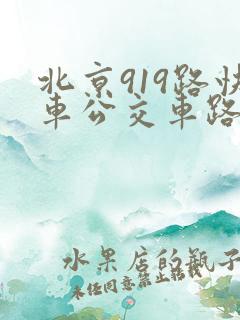 北京919路快
車公交車路
水果店的瓶子
未经同意禁止转载